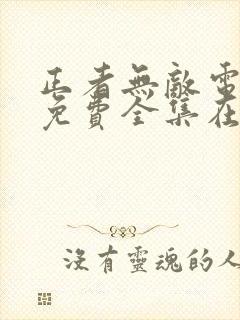 正者無敵電
免費全集在
没有靈魂的人